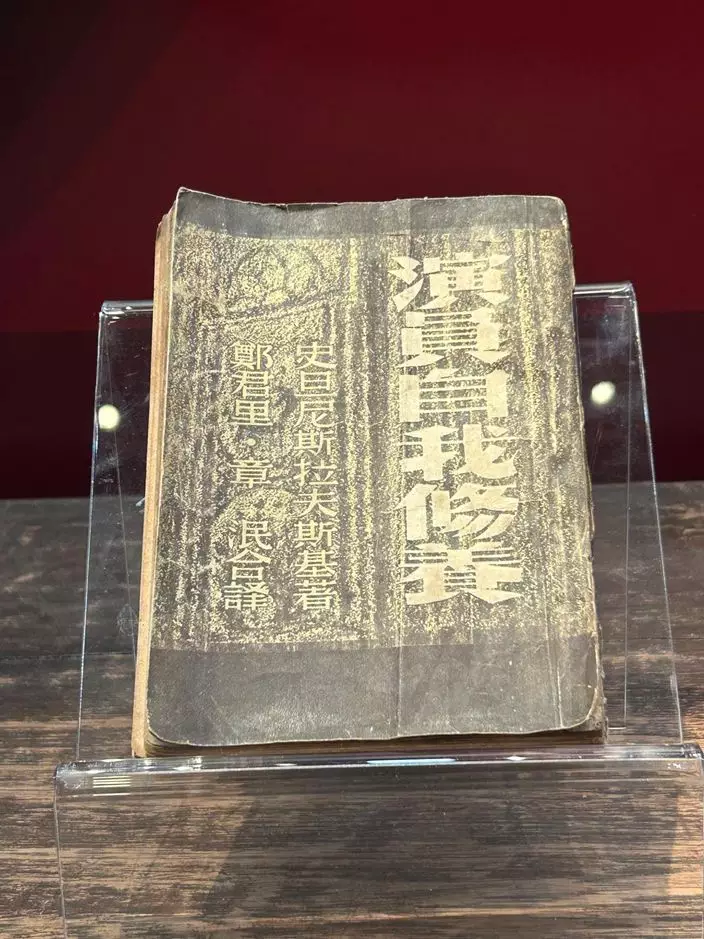 演員自我修養
史旦尼斯拉夫斯基著
鄭君里·章 泯合譯